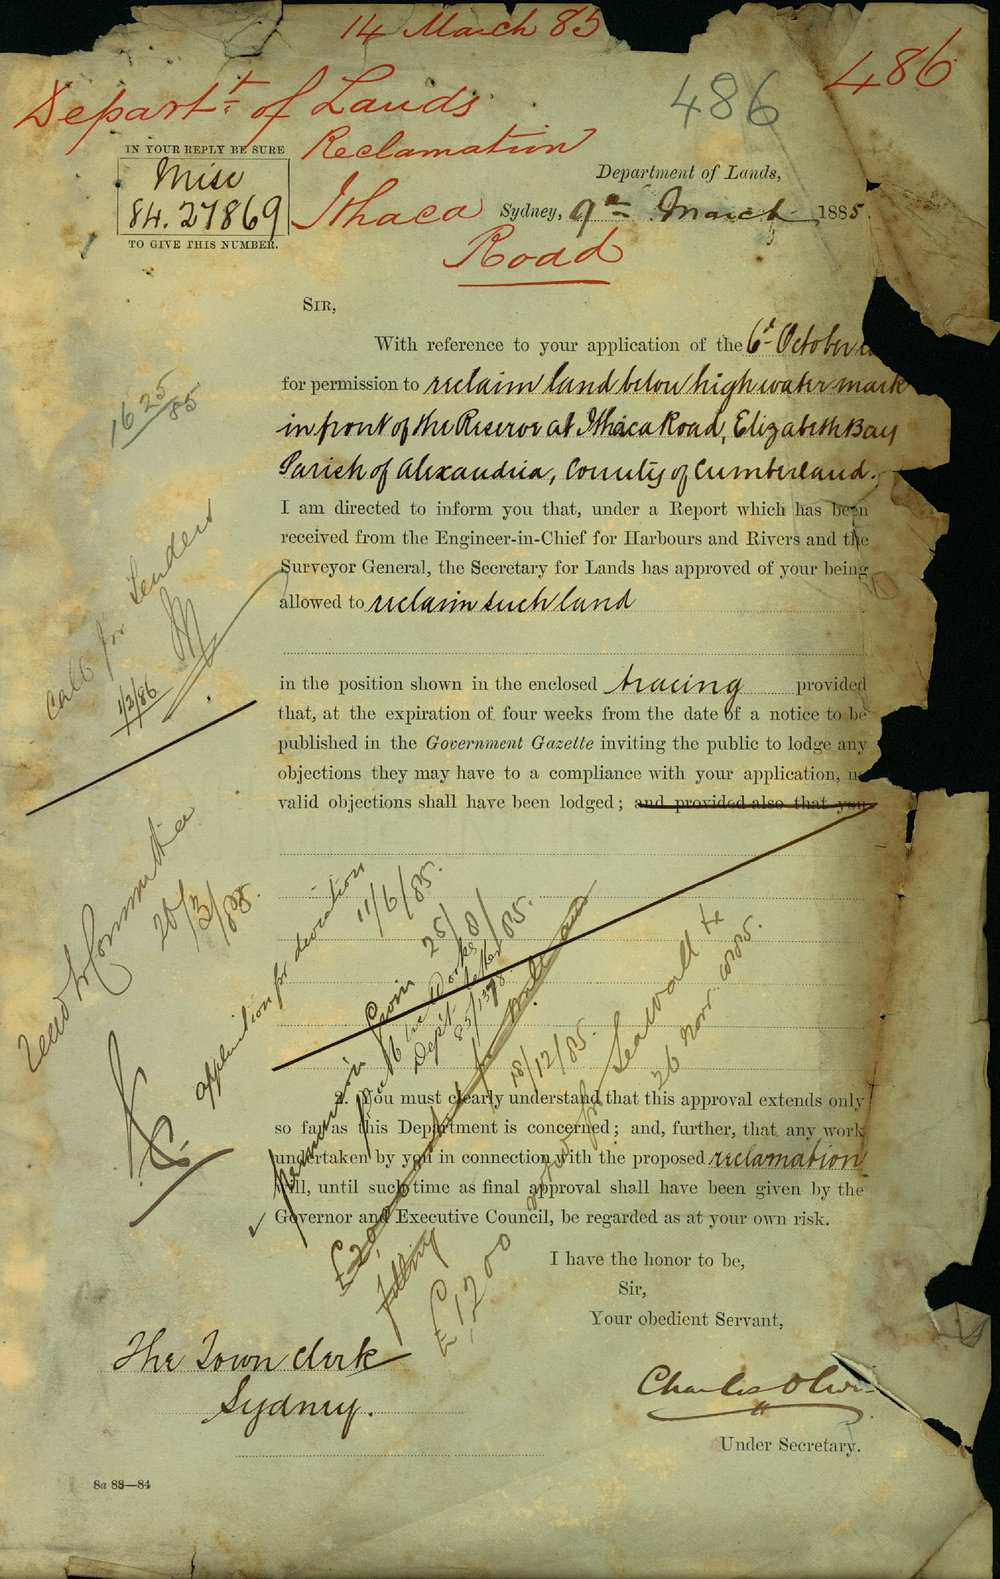 14 March 85
486
486
Depart.t of Lands
Reclamation
Ithaca
Road
IN YOUR REPLY BE SURE
Misc
84.27869
TO GIVE THIS NUMBER.
Department of Lands,
Sydney, 9th March 1885.
SIR,
With reference to your application of the 6th October
for permission to reclaim land below high water mark
in front of the Reserve at Ithaca Road, Elizabeth Bay
Parish of Alexandria, County of Cumberland.
I am directed to inform you that, under a Report which has been
received from the Engineer-in-Chief for Harbours and Rivers and the
Surveyor General, the Secretary for Lands has approved of your being
allowed to reclaim such land
in the position shown in the enclosed tracing provided
that, at the expiration of four weeks from the date of a notice to be
published in the Government Gazette inviting the public to lodge any
objections they may have to a compliance with your application, no
valid objections shall have been lodged; and provided also that you
2. You must clearly understand that this approval extends only
so far as this Department is concerned; and, further, that any work
undertaken by you in connection with the proposed reclamation
will, until such time as final approval shall have been given by the
Governor and Executive Council, be regarded as at your own risk.
I have the honor to be,
Sir,
Your obedient Servant,
Charles Oliver
Under Secretary.
The Town Clerk
Sydney.
8a 88—84
1625/85
Call for Tenders
1/2/86
Read in Committee
20/3/85.
application for deviation
11/6/85.
permission given 25/8/85.
Works
Dept. letter
85/1398
18/12/85.
for Seawall &c
26 Novr. 1885.
£20
filling
£1200